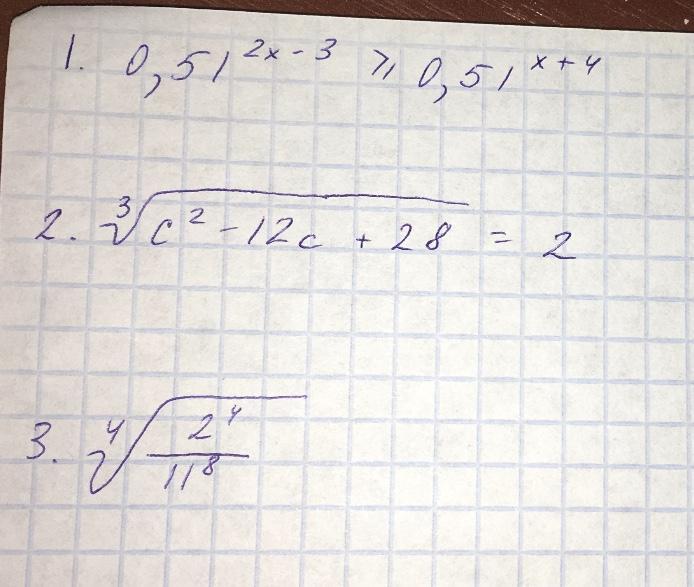 1. 0,51^{2x-3} ⩾ 0,51^{x+4}
2. ∛(c² - 12c + 28) = 2
3. ∜(2⁴/11⁸)